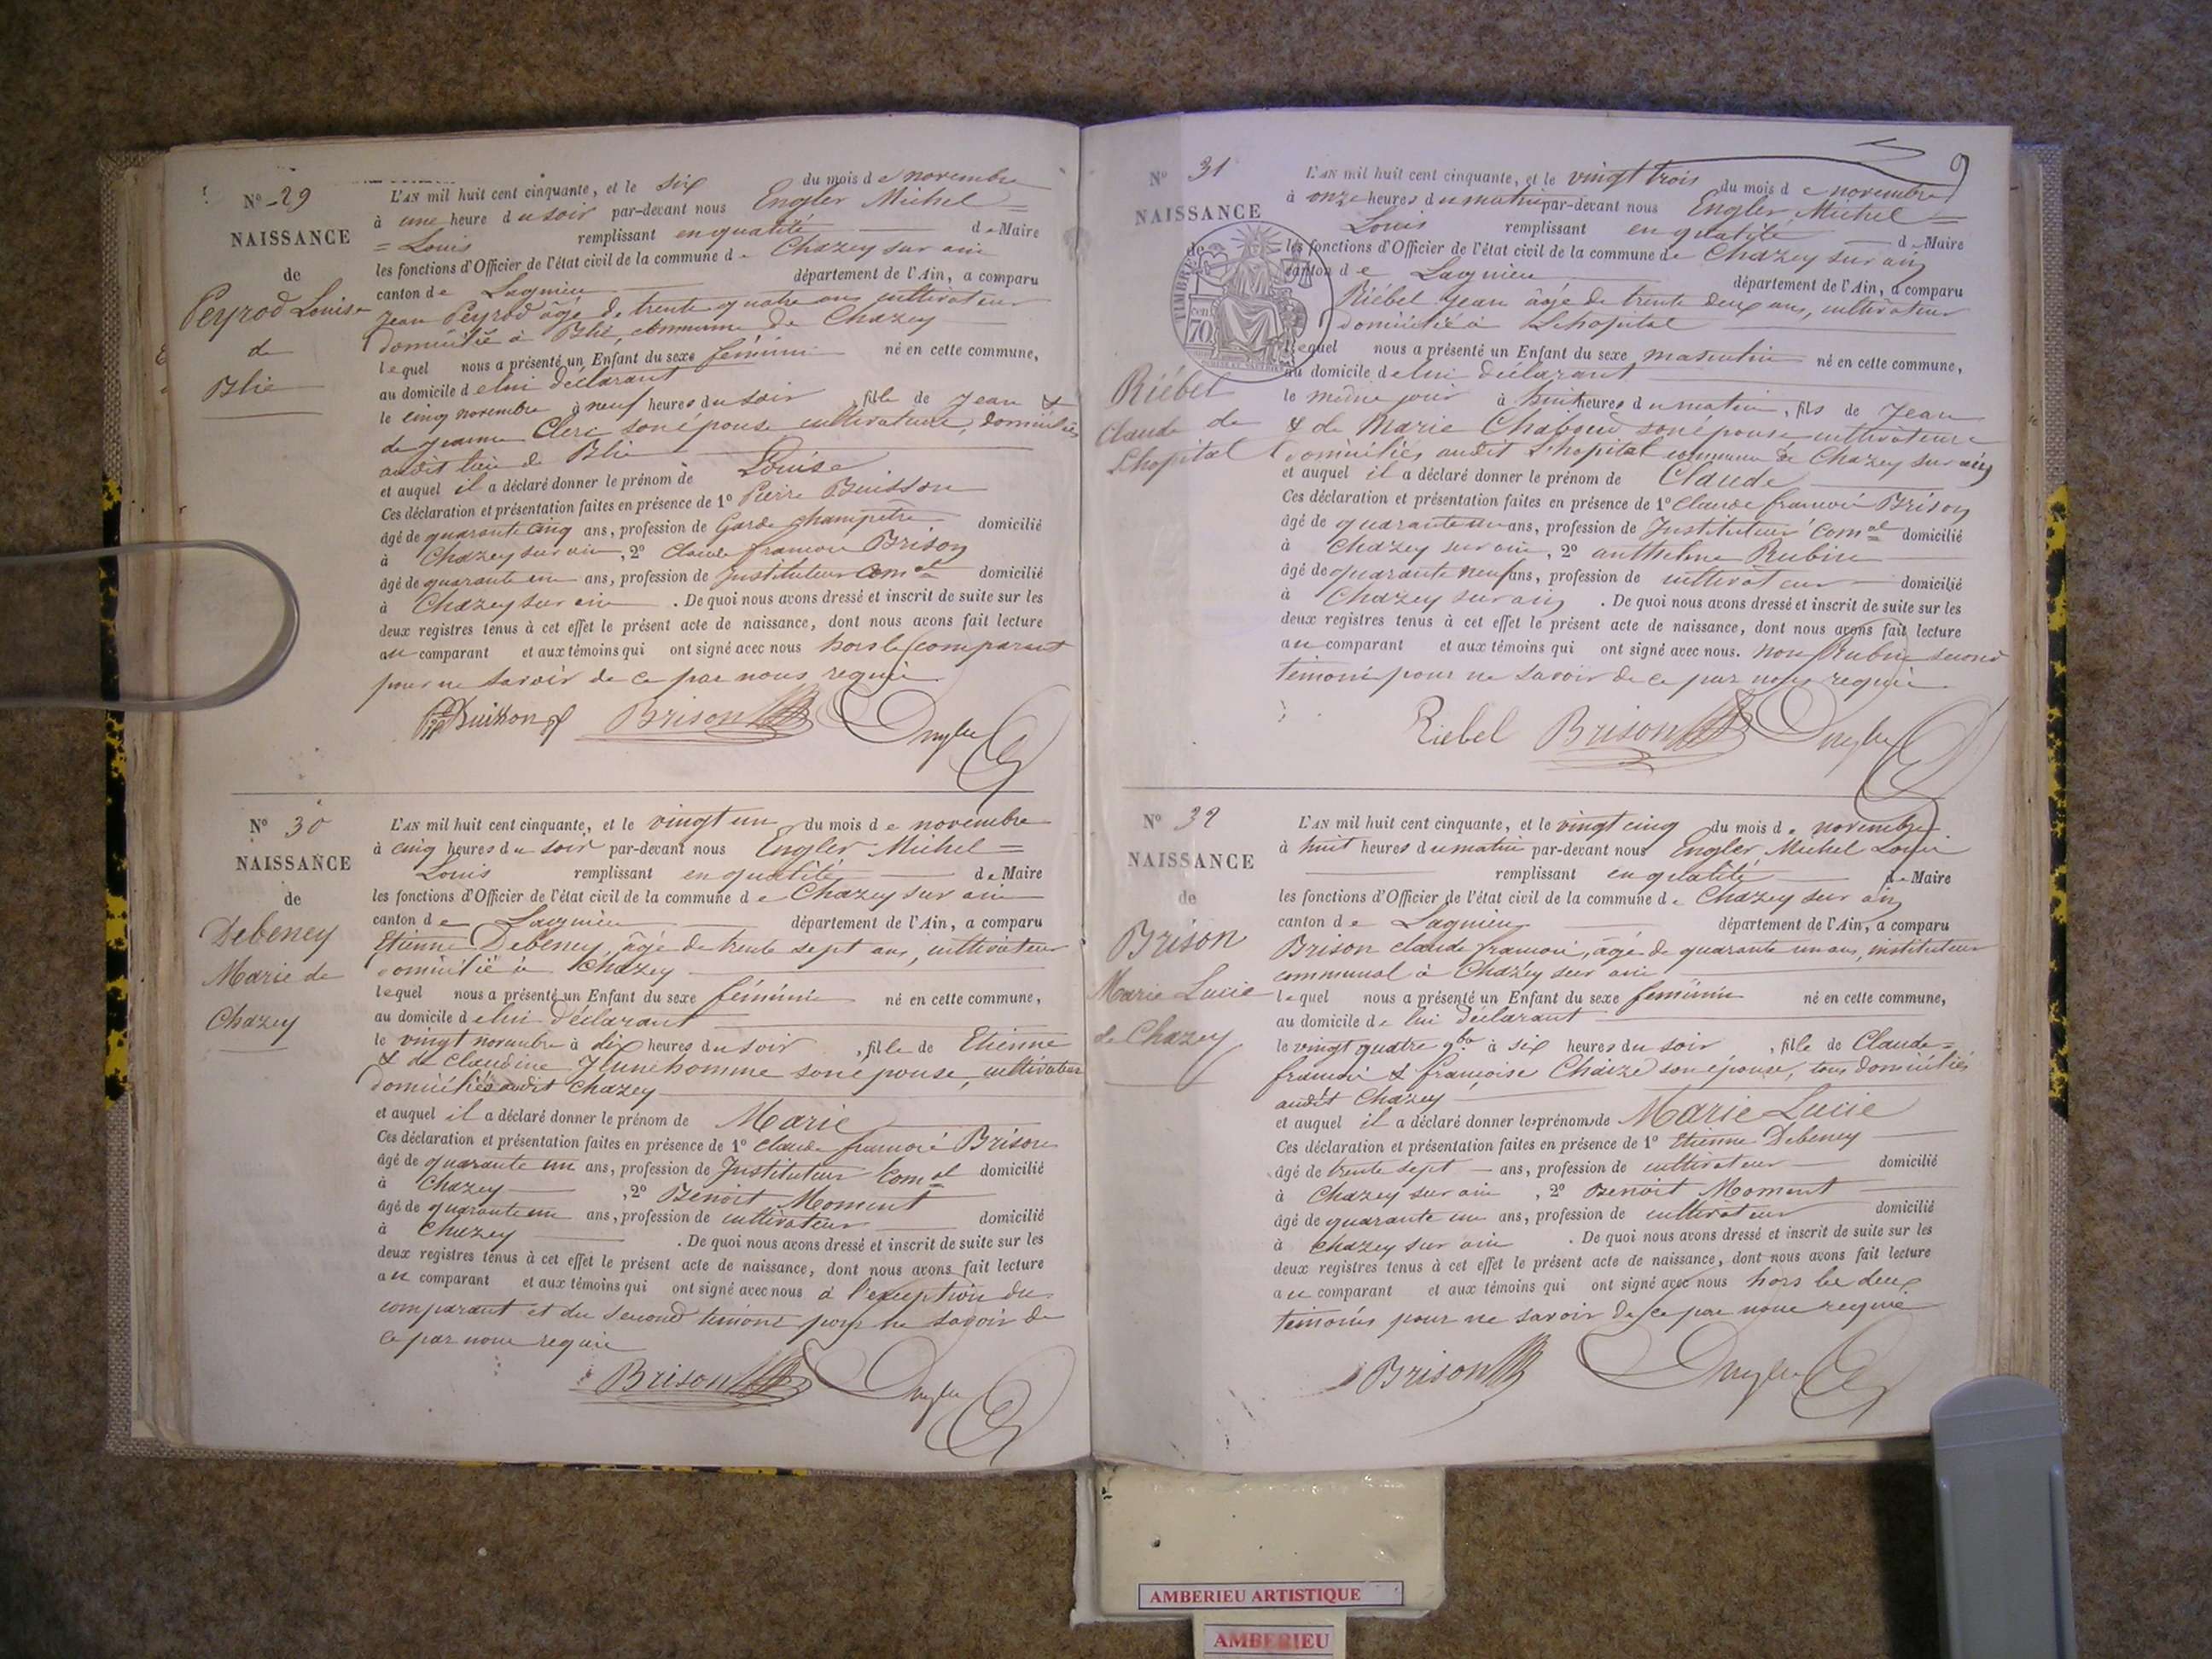 N° 29
NAISSANCE
de
Peyrod Louise
de
Blie
L'AN mil huit cent cinquante, et le six du mois de novembre
à une heure du soir par-devant nous Engler Michel =
= Louis remplissant en qualité de Maire
les fonctions d'Officier de l'état civil de la commune de Chazey sur ain
canton de Lagnieu département de l'Ain, a comparu
Jean Peyrod âgé de trente quatre ans cultivateur
domicilié à Blie, commune de Chazey
lequel nous a présenté un Enfant du sexe féminin né en cette commune,
au domicile de lui déclarant
le cinq novembre à neuf heures du soir, fille de Jean &
de Jeanne Clerc son épouse cultivateurs, domiciliés
audit lieu de Blie
et auquel il a déclaré donner le prénom de Louise
Ces déclaration et présentation faites en présence de 1° Pierre Buisson
âgé de quarante cinq ans, profession de Garde champêtre domicilié
à Chazey sur ain, 2° Claude françois Brison
âgé de quarante un ans, profession de Instituteur Comal domicilié
à Chazey sur ain. De quoi nous avons dressé et inscrit de suite sur les
deux registres tenus à cet effet le présent acte de naissance, dont nous avons fait lecture
au comparant et aux témoins qui ont signé avec nous hors le comparant
pour ne savoir de ce par nous requis
Buisson Brison Engler
N° 30
NAISSANCE
de
Debeney
Marie de
Chazey
L'AN mil huit cent cinquante, et le vingt un du mois de novembre
à cinq heures du soir par-devant nous Engler Michel =
Louis remplissant en qualité de Maire
les fonctions d'Officier de l'état civil de la commune de Chazey sur ain
canton de Lagnieu département de l'Ain, a comparu
Etienne Debeney, âgé de trente sept ans, cultivateur
domicilié à Chazey
lequel nous a présenté un Enfant du sexe féminin né en cette commune,
au domicile de lui déclarant
le vingt novembre à dix heures du soir, fille de Etienne
& de Claudine Jeunehomme son épouse, cultivateurs
domiciliés audit Chazey
et auquel il a déclaré donner le prénom de Marie
Ces déclaration et présentation faites en présence de 1° Claude françois Brison
âgé de quarante un ans, profession de Instituteur Comal domicilié
à Chazey, 2° Benoit Moment
âgé de quarante un ans, profession de cultivateur domicilié
à Chazey. De quoi nous avons dressé et inscrit de suite sur les
deux registres tenus à cet effet le présent acte de naissance, dont nous avons fait lecture
au comparant et aux témoins qui ont signé avec nous à l'exception du
comparant et du second témoins pour ne savoir de
ce par nous requis
Brison Engler
9
N° 31
NAISSANCE
de
TIMBRE
70
Riébel
Claude de
Lhopital
L'AN mil huit cent cinquante, et le vingt trois du mois de novembre
à onze heures du matin par-devant nous Engler Michel =
Louis remplissant en qualité de Maire
les fonctions d'Officier de l'état civil de la commune de Chazey sur ain
canton de Lagnieu département de l'Ain, a comparu
Riébel Jean âgé de trente deux ans, cultivateur
domicilié à Lhopital
lequel nous a présenté un Enfant du sexe masculin né en cette commune,
au domicile de lui déclarant
le même jour à huit heures du matin, fils de Jean
& de Marie son épouse cultivateurs
domiciliés audit Lhopital commune de Chazey sur ain
et auquel il a déclaré donner le prénom de Claude
Ces déclaration et présentation faites en présence de 1° Claude françois Brison
âgé de quarante un ans, profession de Instituteur Comal domicilié
à Chazey sur ain, 2° anthelme Rubin
âgé de quarante neuf ans, profession de cultivateur domicilié
à Chazey sur ain. De quoi nous avons dressé et inscrit de suite sur les
deux registres tenus à cet effet le présent acte de naissance, dont nous avons fait lecture
au comparant et aux témoins qui ont signé avec nous. non Rubin second
témoins pour ne savoir de ce par nous requis
Riebel Brison Engler
N° 32
NAISSANCE
de
Brison
Marie Lucie
de Chazey
L'AN mil huit cent cinquante, et le vingt cinq du mois de novembre
à huit heures du matin par-devant nous Engler Michel Louis
remplissant en qualité de Maire
les fonctions d'Officier de l'état civil de la commune de Chazey sur ain
canton de Lagnieu département de l'Ain, a comparu
Brison Claude françois, âgé de quarante un ans, instituteur
communal à Chazey sur ain
lequel nous a présenté un Enfant du sexe féminin né en cette commune,
au domicile de lui déclarant
le vingt quatre 9bre à six heures du soir, fille de Claude=
françois & françoise Chaize son épouse, tous domiciliés
audit Chazey
et auquel il a déclaré donner les prénoms de Marie Lucie
Ces déclaration et présentation faites en présence de 1° Etienne Debeney
âgé de trente sept ans, profession de cultivateur domicilié
à Chazey sur ain, 2° Benoit Moment
âgé de quarante un ans, profession de cultivateur domicilié
à Chazey sur ain. De quoi nous avons dressé et inscrit de suite sur les
deux registres tenus à cet effet le présent acte de naissance, dont nous avons fait lecture
au comparant et aux témoins qui ont signé avec nous hors les deux
témoins pour ne savoir de ce par nous requis
Brison Engler
AMBERIEU ARTISTIQUE
AMBERIEU